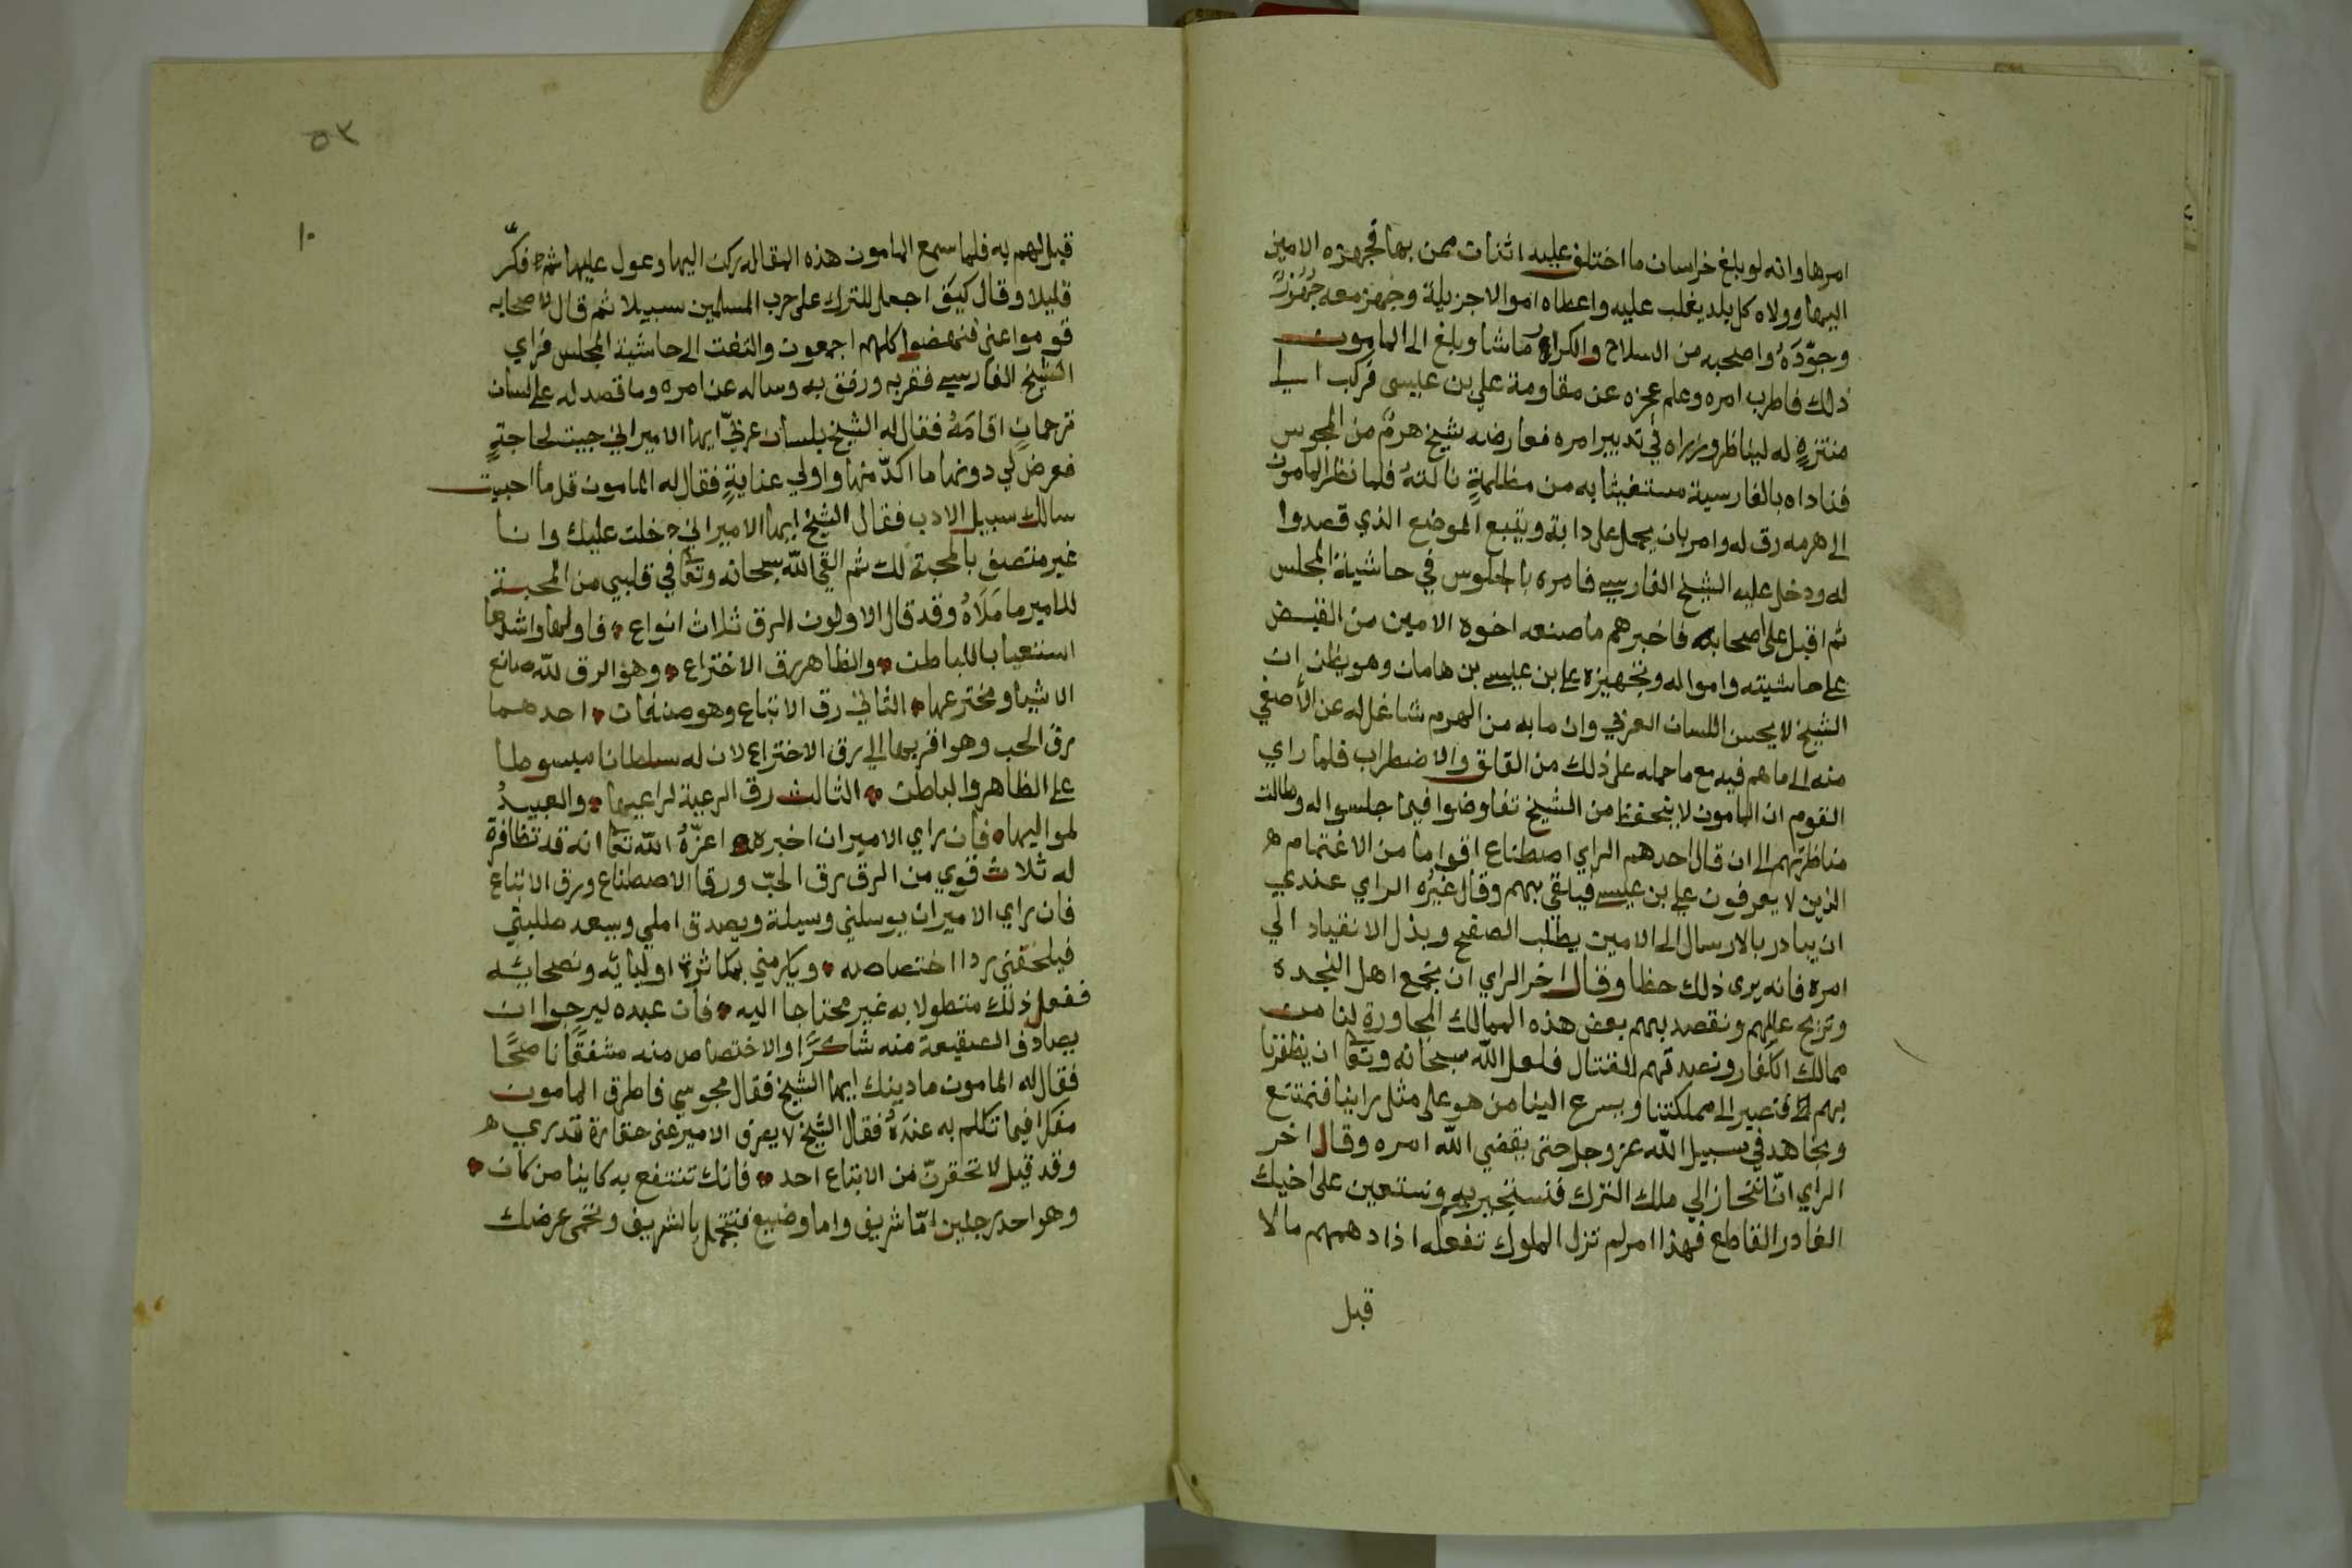 امرها وانه لو بلغ خراسان ما اختلف عليه اثنان ممن بها فجهزه الامين
اليها وولاه كل بلد يغلب عليه واعطاه اموالا جزيلة وجهز معه
وجوّدَهُ واصحبه من السلاح والكراع ماشا وبلغ الى المامون
ذلك فاطرب امره وعلم عجزه عن مقاومة علي بن عيسى فركب الي
منتزهٍ له ليناظر وزراه في تدبير امره فعارضه شيخ هرمٌ من المجوس
فناداه بالفارسية مستغيثا به من مظلمةٍ نالته فلما نظر المامون
الى هرمه رق له وامر بان يحمل على دابة ويتبع الموضع الذي قصدوا
له ودخل عليه الشيخ الفارسي فامره بالجلوس في حاشية المجلس
ثم اقبل على اصحابه فاخبرهم ما صنعه اخوه الامين من القبض
على حاشيته وامواله وتجهيزه علي بن عيسى بن هامان وهو يظن ان
الشيخ لا يحسن اللسان العربي وان ما به من الهرم شاغل له عن الأصغي
منه الى ما هم فيه مع ما حمله على ذلك من القلق والاضطراب فلما راي
القوم ان المامون لا يتحفظ من الشيخ تفاوضوا فيما جلسوا له وطالت
مناظرتهم الى ان قال احدهم الراي اصطناع اقواما من الاغتمام
الذين لا يعرفون علي بن عيسى فيلقى بهم وقال غيرُه الراي عندي
ان يبادر بالارسال الى الامين يطلب الصفح وبذل الانقياد الي
امره فانه يرى ذلك حظا وقال اخر الراي ان نجمع اهل النجده
ونزيح عللهم ونقصد بهم بعض هذه الممالك المجاورة لنا من
ممالك الكفار ونصدقهم القتال فلعل الله سبحانه وتعا ان يظفرنا
بهم فنصير الى مملكتنا ويسرع الينا من هو على مثل راينا فنمتنع
ونجاهد في سبيل الله عز وجل حتى يقضي الله امره وقال اخر
الراي انّا ننحاز الي ملك الترك فنستجير به ونستعين على اخيك
الغادر القاطع فهذا امر لم تزل الملوك تفعله اذا دهمهم ما لا
قبل
٥٣
١٠
قبل لهم به فلما سمع المامون هذه المقاله ركن اليها وعول عليها ثم فكّر
قليلا وقال كيف اجعل للترك على حرب المسلمين سبيلا ثم قال لاصحابه
قوموا عني فنهضوا كلهم اجمعون والتفت الى حاشية المجلس فراي
الشيخ الفارسي فقربه ورفق به وساله عن امره وما قصد له على لسان
ترجمانٍ اقامَهُ فقال له الشيخ بلسان عربيّ ايها الامير اني جيت لحاجةٍ
فعرض لي دونها ما اكدّ منها واولي عنايةٍ فقال له المامون قل ما احببت
سالك سبيل الادب فقال الشيخ ايها الامير اني دخلت عليك وانا
غير متصف بالمحبة لك ثم القى الله سبحانه وتعا في قلبي من المحبة
للامير ما مَلَاهُ وقد قال الاولون الرق ثلاث انواع فاولها واشدها
استعبابا للباطن والظاهر رق الاختراع وهو الرق لله صانع
الاشيا ومخترعها الثاني رق الاتباع وهو صنفان احدهما
رق الحب وهو اقربها الي رق الاختراع لان له سلطانا مبسوطا
على الظاهر والباطن الثالث رق الرعية لراعيها والعبيدُ
لمواليها فان راي الامير ان اخبره اعزّهُ الله تعا انه قد تظافرة
له ثلاث قوي من الرق رق الحبّ ورق الاصطناع ورق الاتباع
فان راي الامير ان يوسلني وسيلة ويصدق املي ويسعد طلبتي
فيلحفني ردا اختصاصه ويكرمني بمكاثرة اوليائه ونصحائه
ففعل ذلك متطولا به غير محتاجا اليه فان عبده ليرجوا ان
يصادف الصنيعة منه شاكرًا والاختصاص منه مشفقًا ناصحًا
فقال له المامون ما دينك ايها الشيخ فقال مجوسي فاطرق المامون
مفكرا فيما تكلم به عندَهُ فقال الشيخ لا يعرف الامير عني حقارة قدري
وقد قيل لا تحقرنّ من الاتباع احد فانك تنتفع به كاينا من كان
وهو احد رجلين امّا شريف واما وضيع فتتجمل بالشريف وتحمى عرضك